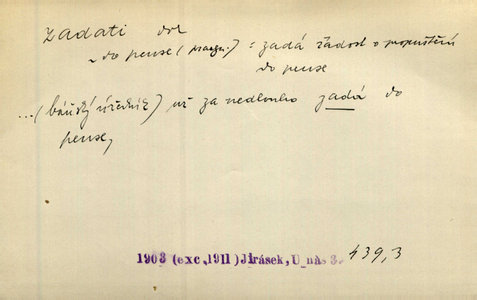 zadati dok
~ do pense (pragm.) = zadá žádost o propuštění
do pense
...(báňský úředník) už za nedlouho zadá do
pense,
1903 (exc. 1911) Jirásek, U nás 3. 439,3